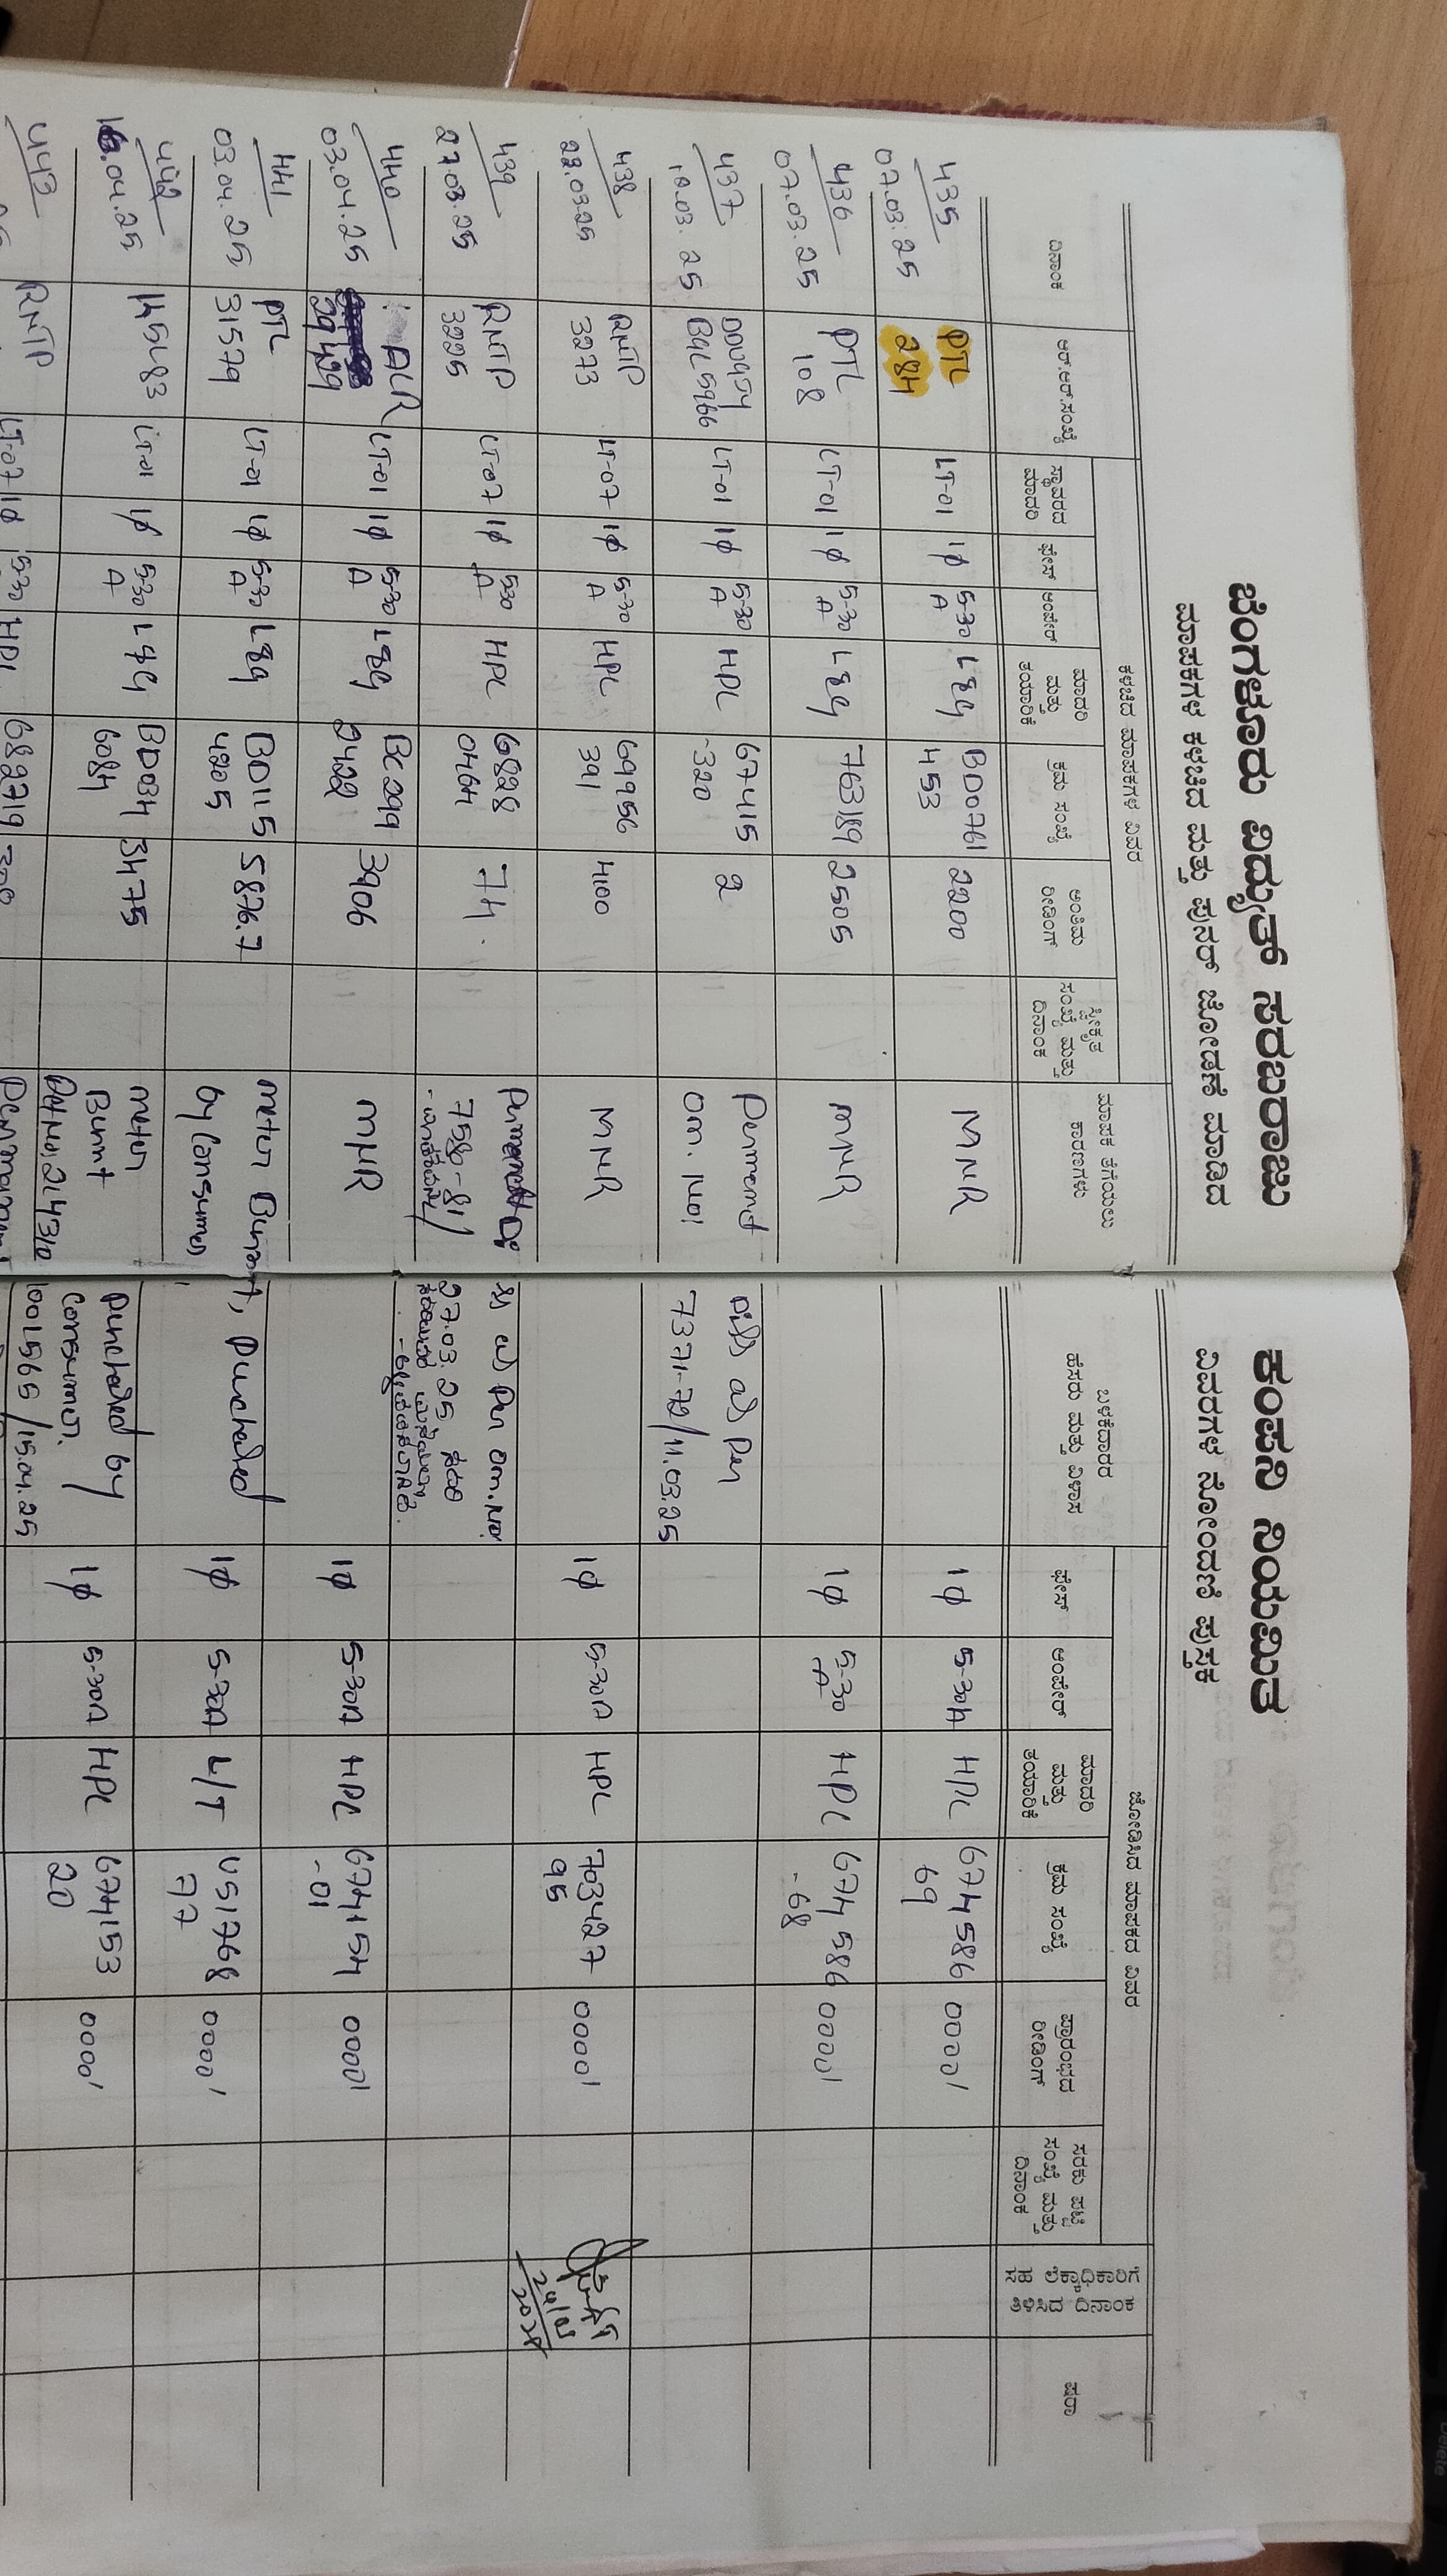 ಬೆಂಗಳೂರು ವಿದ್ಯುತ್ ಸರಬರಾಜು ಕಂಪನಿ ನಿಯಮಿತ
ಮಾಪಕಗಳ ಕಳಚಿದ ಮತ್ತು ಪುನರ್ ಜೋಡಣೆ ಮಾಡಿದ ವಿವರಗಳ ನೋಂದಣಿ ಪುಸ್ತಕ
ಕಳಚಿದ ಮಾಪಕಗಳ ವಿವರ
ಜೋಡಿಸಿದ ಮಾಪಕದ ವಿವರ
ದಿನಾಂಕ
ಆರ್.ಆರ್.ಸಂಖ್ಯೆ
ಸ್ಥಾವರದ ಮಾದರಿ
ಫೇಸ್
ಆಂಪೇರ್
ಮಾದರಿ ಮತ್ತು ತಯಾರಿಕೆ
ಕ್ರಮ ಸಂಖ್ಯೆ
ಅಂತಿಮ ರೀಡಿಂಗ್
ಸ್ವೀಕೃತ ಸಂಖ್ಯೆ ಮತ್ತು ದಿನಾಂಕ
ಮಾಪಕ ತೆಗೆಯಲು ಕಾರಣಗಳು
ಬಳಕೆದಾರರ ಹೆಸರು ಮತ್ತು ವಿಳಾಸ
ಫೇಸ್
ಆಂಪೇರ್
ಮಾದರಿ ಮತ್ತು ತಯಾರಿಕೆ
ಕ್ರಮ ಸಂಖ್ಯೆ
ಪ್ರಾರಂಭದ ರೀಡಿಂಗ್
ಸರಕು ಪಟ್ಟಿ ಸಂಖ್ಯೆ ಮತ್ತು ದಿನಾಂಕ
ಸಹ ಲೆಕ್ಕಾಧಿಕಾರಿಗೆ ತಿಳಿಸಿದ ದಿನಾಂಕ
ಷರಾ
435 PTL LT-01 1ϕ 5-30 L&G BD0761 2200 MNR 1ϕ 5-30A HPL 674586 0000'
07.03.25 284 A 453 69
436 PTL LT-01 1ϕ 5-30 L&G 763189 2505 MNR 1ϕ 5-30 HPL 674586 0000'
07.03.25 108 A A -68
437 LT-01 1ϕ 5-30 HPL 67415 2 Permenent as per
10.03.25 A -320 om. No: 7371-72/11.03.25
438 RNTP LT-07 1ϕ 5-30 HPL 69956 4100 MNR 1ϕ 5-30A HPL 703427 0000'
22.03.25 3273 A 391 95
439 RNTP LT-07 1ϕ 5-30 HPL 6828 74 as per om.No:
27.03.25 3225 A 0464 7580-81/ 27.03.25
440 LT-01 1ϕ 5-30 L&G BC299 3906 MNR 1ϕ 5-30A HPL 674154 0000'
03.04.25 29429 A -01
441 PTL LT-01 1ϕ 5-30 L&G BD115 5876.7 Meter Burnt, Purchased 1ϕ 5-30A L/T US1768 0000'
03.04.25 31579 A 4205 by Consumer 77
14583 LT-01 1ϕ 5-30 L&G BD034 3475 Meter Burnt Purchased by Consumer. 1ϕ 5-30A HPL 674153 0000'
.04.25 A 6084 1001565/15.04.25 20
443 RNTP LT-07 1ϕ 5-30 HPL 682719